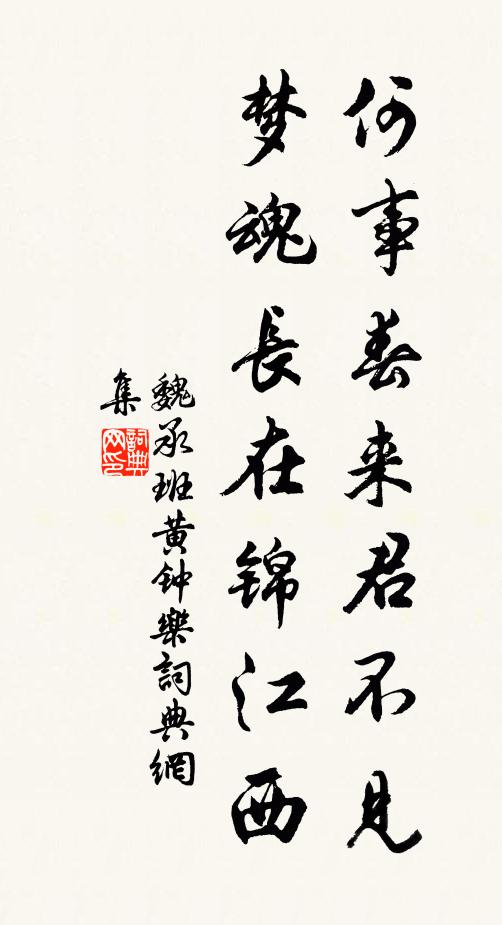 何事春来君不見
梦魂長在锦江西
魏承班黄钟樂詞典網
集
詞典网印